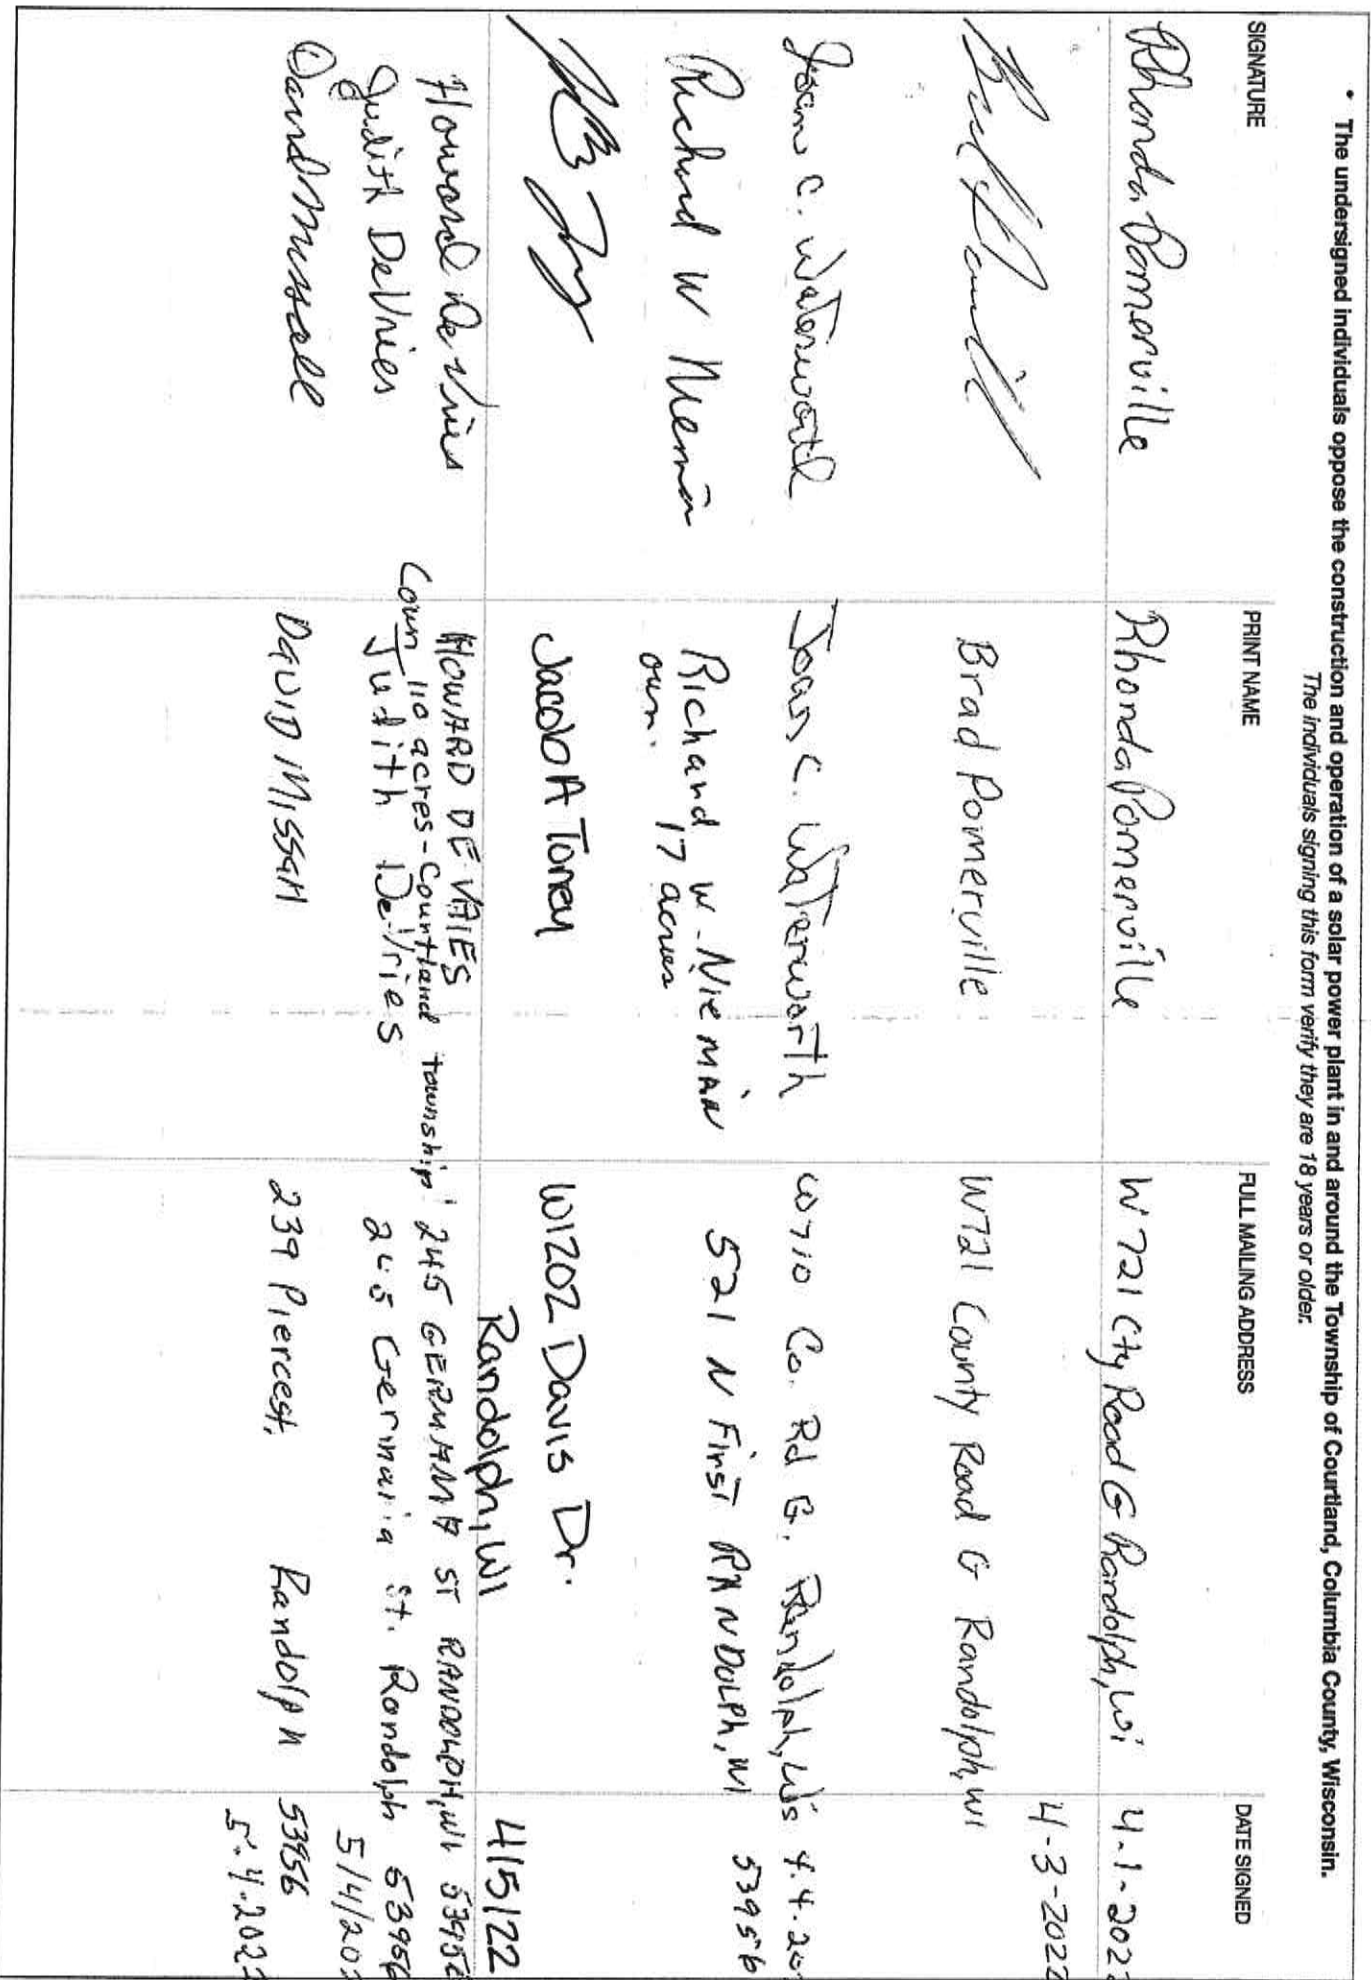 • The undersigned individuals oppose the construction and operation of a solar power plant in and around the Township of Courtland, Columbia County, Wisconsin.
The individuals signing this form verify they are 18 years or older.
SIGNATURE PRINT NAME FULL MAILING ADDRESS DATE SIGNED
Rhonda Pomerville Rhonda Pomerville W721 Cty Road G Randolph, Wi 4-1-202
4-3-2022
Brad Pomerville W721 County Road G Randolph, WI
Joan C. Waterworth Joan C. Waterworth W710 Co. Rd G. Randolph, Wis 4.4.20
Richard W Nieman Richard W. Nieman 521 N First RANDOLPH, WI 53956
own. 17 acres
Jacob A Toney W1202 Davis Dr.
Randolph, WI 4/5/22
Howard De Vries HOWARD DE VRIES 245 GERMANIA ST RANDOLPH, WI 53956
(own 110 acres - Courtland township!
Judith DeVries Judith DeVries 245 Germania St. Randolph 53956
5/4/202
David Missall DAVID MISSALL 239 Pierce St, Randolph 53956
5.4.2022